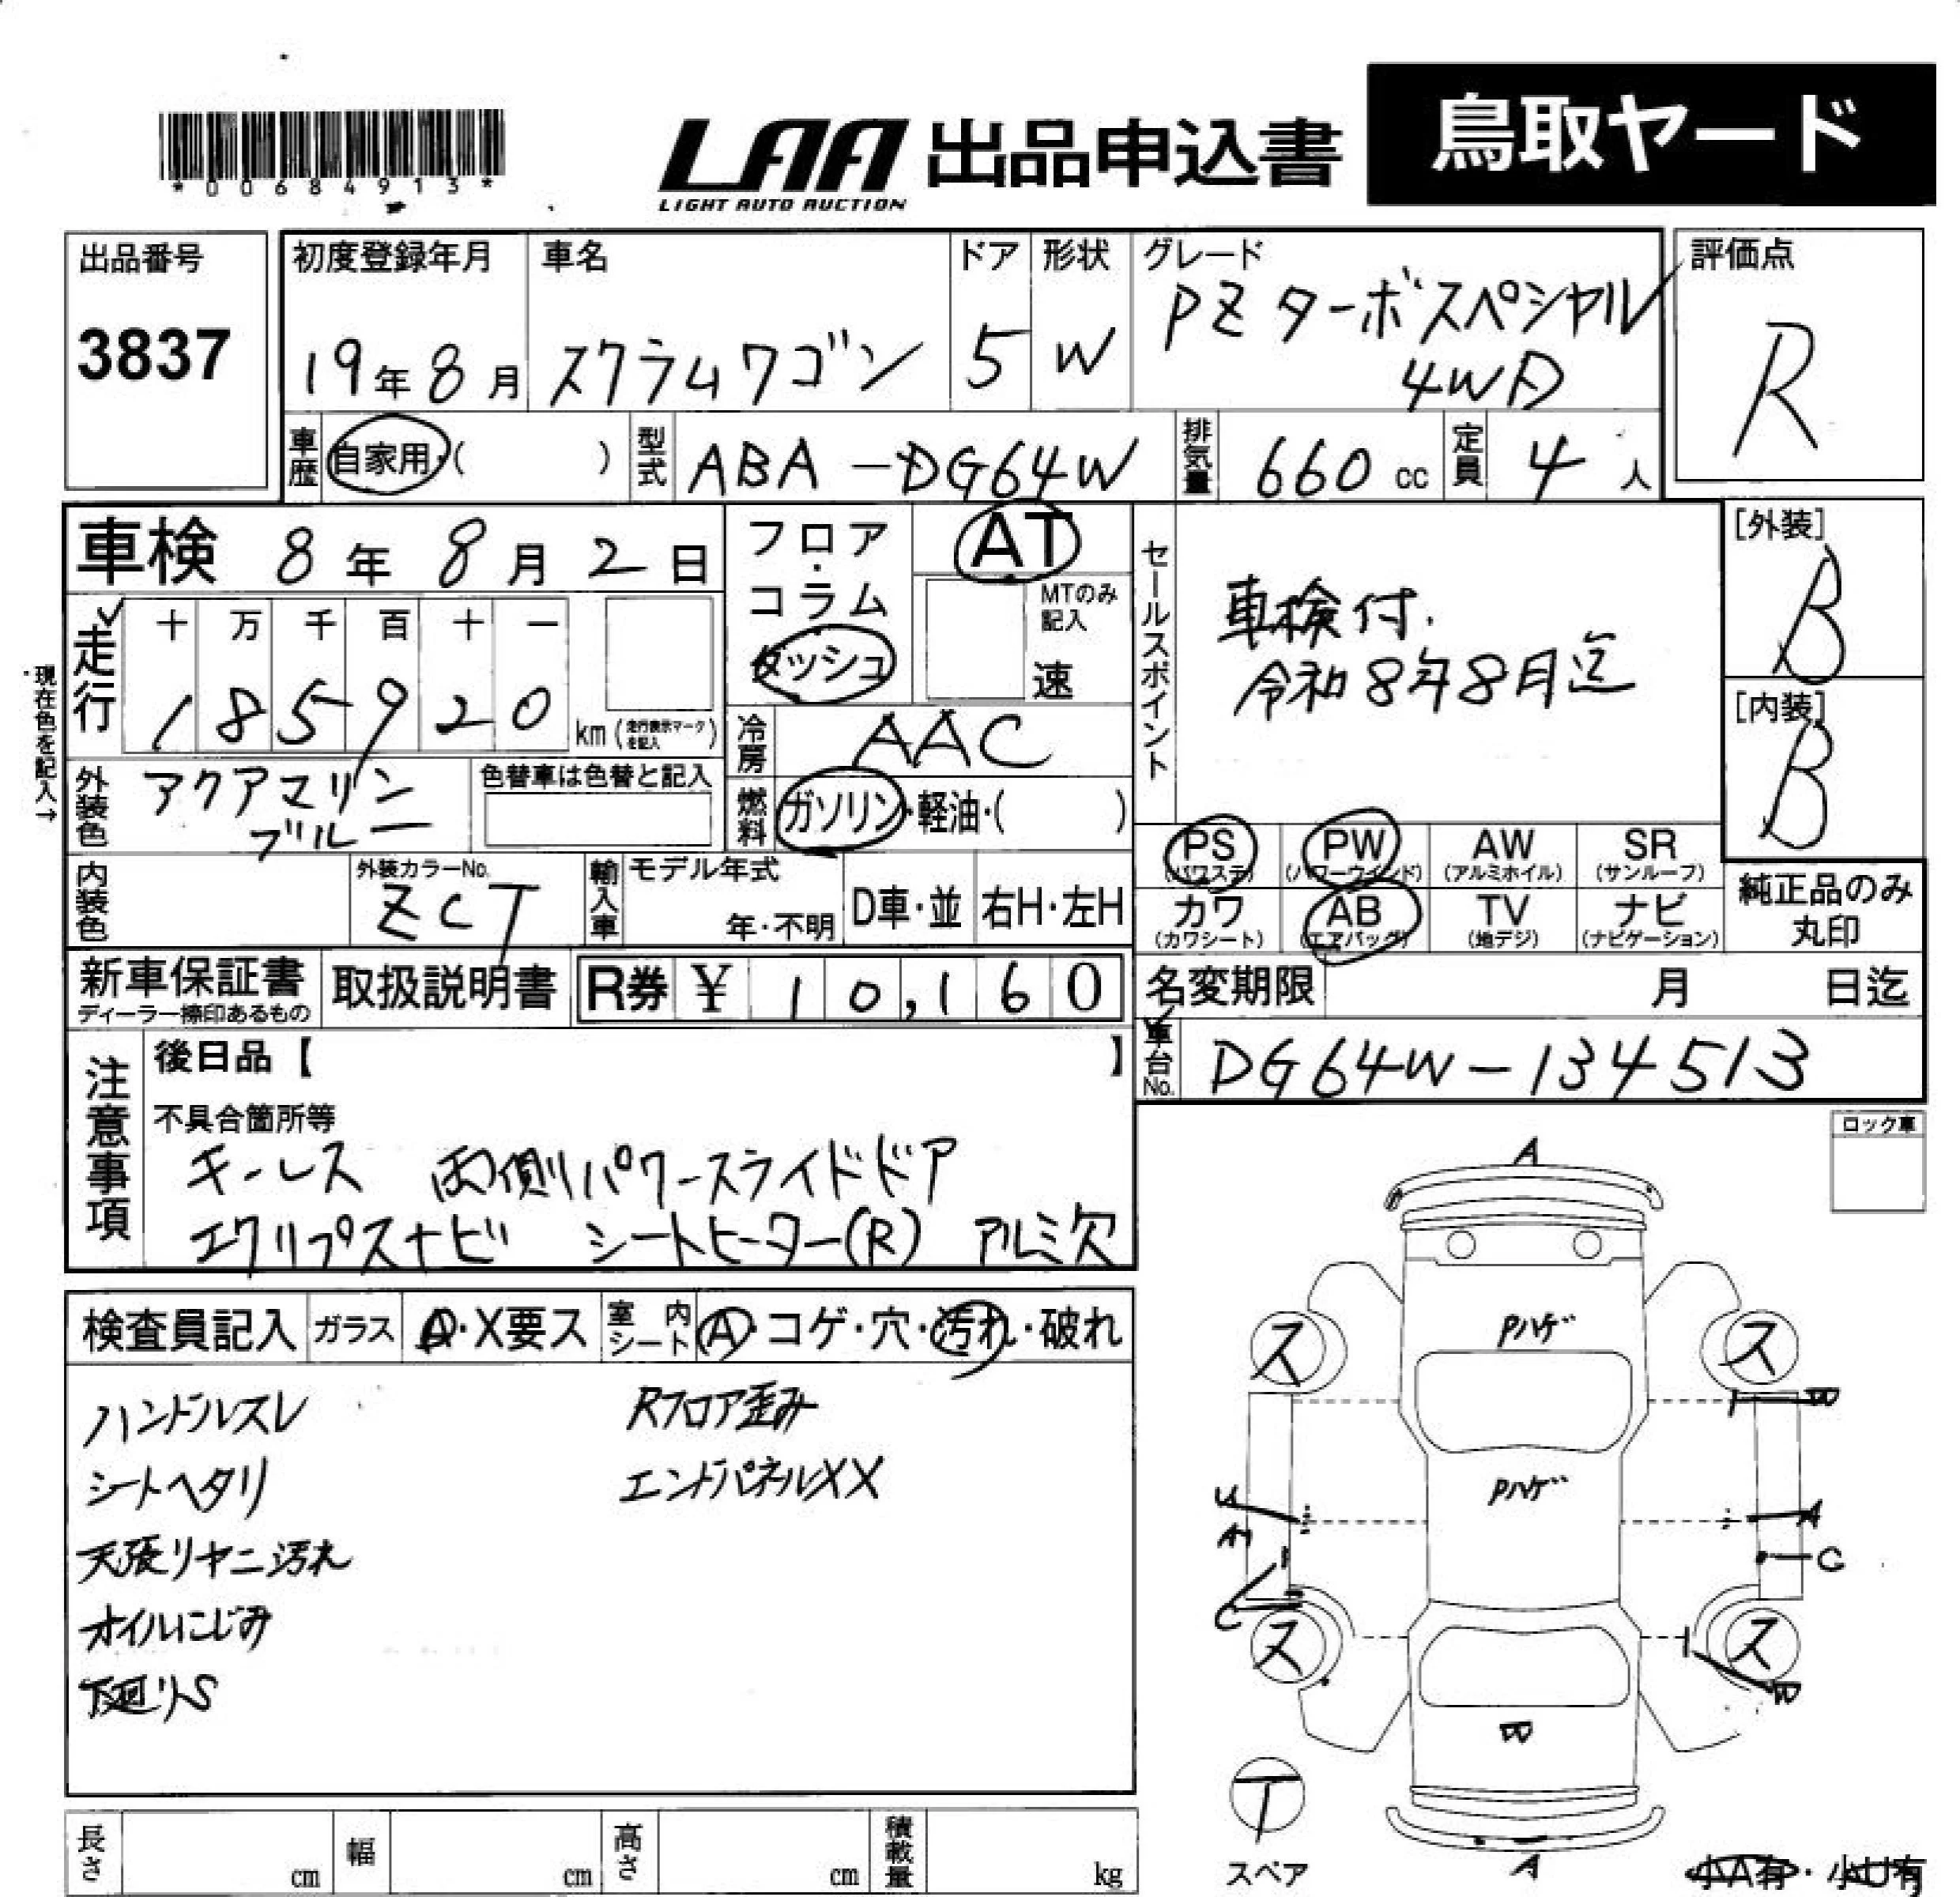 *00684913*
LAA 出品申込書 鳥取ヤード
LIGHT AUTO AUCTION
出品番号
3837
初度登録年月
19年8月
車名
スクラムワゴン
ドア
5
形状
W
グレード
PZターボスペシャル
4WD
評価点
R
車歴 自家用・( )
型式 ABA-DG64W
排気量 660cc
定員 4人
車検 8年8月2日
フロア・コラム
ダッシュ
AT
MTのみ記入
速
セールスポイント
車検付.
令和8年8月迄
[外装]
B
[内装]
B
現在色を記入→
走行
十 万 千 百 十 一
1 8 5 9 2 0 km (走行表示マークを記入)
冷房 AAC
外装色 アクアマリン
ブルー
色替車は色替と記入
燃料 ガソリン・軽油・( )
PS (パワステ) PW (パワーウインド) AW (アルミホイル) SR (サンルーフ)
カワ (カワシート) AB (エアバッグ) TV (地デジ) ナビ (ナビゲーション)
純正品のみ
丸印
内装色
外装カラーNo.
ZCT
輸入車 モデル年式
年・不明
D車・並 右H・左H
新車保証書
ディーラー捺印あるもの
取扱説明書
R券 ¥ 10,160
名変期限 月 日迄
車台No. DG64W-134513
注意事項
後日品【 】
不具合箇所等
キーレス 両側パワースライドドア
エクリプスナビ シートヒーター(R) アルミ欠
ロック車
検査員記入 ガラス A・X要ス 室内シート A・コゲ・穴・汚れ・破れ
ハンドルスレ
シートヘタリ
天張リヤニ汚れ
オイルにじみ
下廻りS
Rフロア歪み
エンドパネルXX
A
Pハゲ
ス ス
B
Pハゲ
U
A
A1
C
C
ス ス
B
B
T
スペア
A
小A有・小U有
長さ cm 幅 cm 高さ cm 積載量 kg